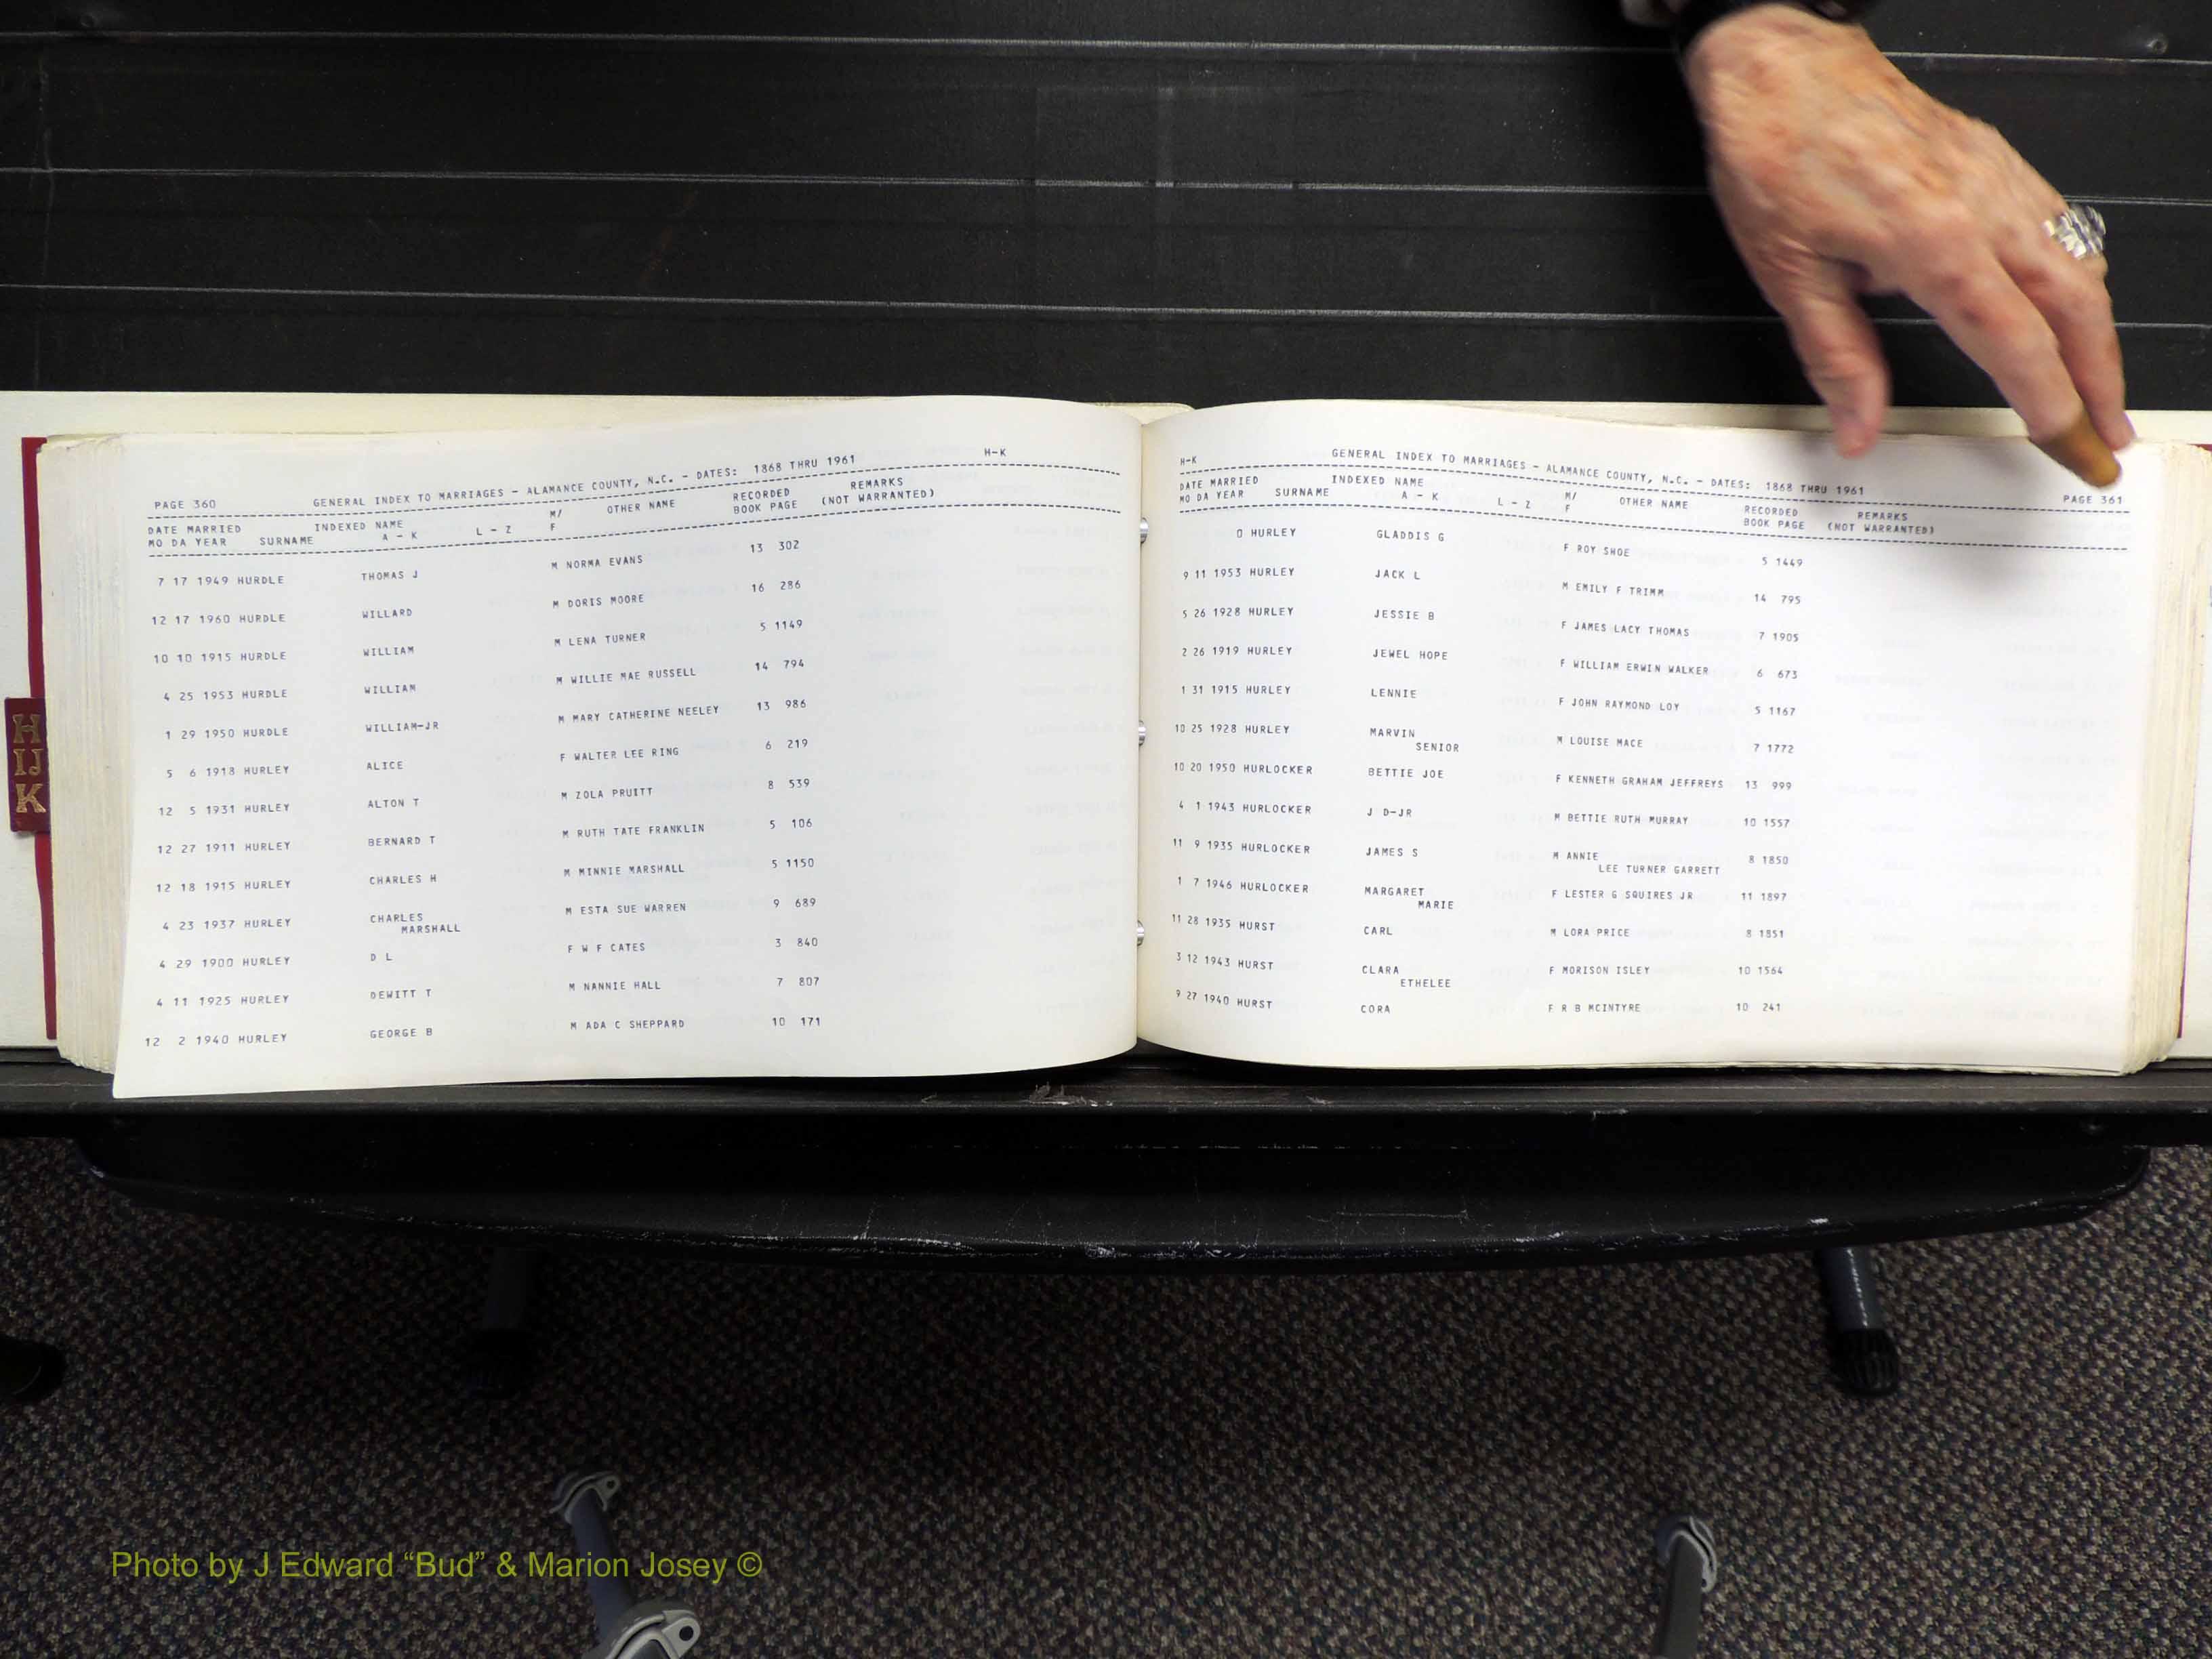 H
IJ
K
PAGE 360 GENERAL INDEX TO MARRIAGES - ALAMANCE COUNTY, N.C. - DATES: 1868 THRU 1961 H-K
DATE MARRIED INDEXED NAME M/ OTHER NAME RECORDED REMARKS
MO DA YEAR SURNAME A - K L - Z F BOOK PAGE (NOT WARRANTED)
7 17 1949 HURDLE THOMAS J M NORMA EVANS 13 302
12 17 1960 HURDLE WILLARD M DORIS MOORE 16 286
10 10 1915 HURDLE WILLIAM M LENA TURNER 5 1149
4 25 1953 HURDLE WILLIAM M WILLIE MAE RUSSELL 14 794
1 29 1950 HURDLE WILLIAM-JR M MARY CATHERINE NEELEY 13 986
5 6 1918 HURLEY ALICE F WALTER LEE RING 6 219
12 5 1931 HURLEY ALTON T M ZOLA PRUITT 8 539
12 27 1911 HURLEY BERNARD T M RUTH TATE FRANKLIN 5 106
12 18 1915 HURLEY CHARLES H M MINNIE MARSHALL 5 1150
4 23 1937 HURLEY CHARLES M ESTA SUE WARREN 9 689
MARSHALL
4 29 1900 HURLEY D L F W F CATES 3 840
4 11 1925 HURLEY DEWITT T M NANNIE HALL 7 807
12 2 1940 HURLEY GEORGE B M ADA C SHEPPARD 10 171
H-K GENERAL INDEX TO MARRIAGES - ALAMANCE COUNTY, N.C. - DATES: 1868 THRU 1961 PAGE 361
DATE MARRIED INDEXED NAME M/ OTHER NAME RECORDED REMARKS
MO DA YEAR SURNAME A - K L - Z F BOOK PAGE (NOT WARRANTED)
0 HURLEY GLADDIS G F ROY SHOE 5 1449
9 11 1953 HURLEY JACK L M EMILY F TRIMM 14 795
5 26 1928 HURLEY JESSIE B F JAMES LACY THOMAS 7 1905
2 26 1919 HURLEY JEWEL HOPE F WILLIAM ERWIN WALKER 6 673
1 31 1915 HURLEY LENNIE F JOHN RAYMOND LOY 5 1167
10 25 1928 HURLEY MARVIN M LOUISE MACE 7 1772
SENIOR
10 20 1950 HURLOCKER BETTIE JOE F KENNETH GRAHAM JEFFREYS 13 999
4 1 1943 HURLOCKER J D-JR M BETTIE RUTH MURRAY 10 1557
11 9 1935 HURLOCKER JAMES S M ANNIE 8 1850
LEE TURNER GARRETT
1 7 1946 HURLOCKER MARGARET F LESTER G SQUIRES JR 11 1897
MARIE
11 28 1935 HURST CARL M LORA PRICE 8 1851
3 12 1943 HURST CLARA F MORISON ISLEY 10 1564
ETHELEE
9 27 1940 HURST CORA F R B MCINTYRE 10 241
Photo by J Edward “Bud” & Marion Josey ©